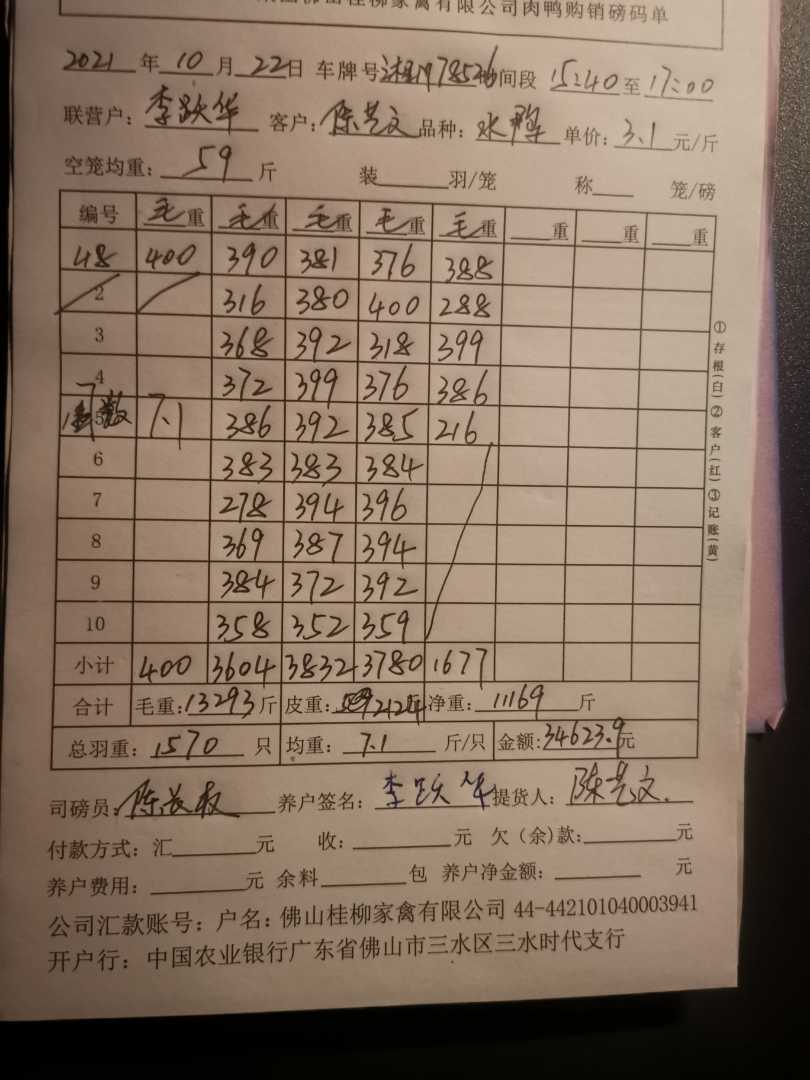 佛山桂柳家禽有限公司肉鸭购销磅码单
2021年10月22日 车牌号 78526 时间段 15:40至17:00
联营户：李跃华 客户：陈艺文 品种：水鸭 单价：3.1元/斤
空笼均重：59斤 装 羽/笼 称 笼/磅
编号 毛重 毛重 毛重 毛重 毛重 重 重 重
48 400 390 381 376 388
2 316 380 400 288
3 368 392 318 399
4 372 399 376 386
5 7.1 386 392 385 216
6 383 383 384
7 278 394 396
8 369 387 394
9 384 372 392
10 358 352 359
小计 400 3604 3832 3780 1677
合计 毛重：13293斤 皮重：2124 净重：11169斤
总羽重：1570只 均重：7.1斤/只 金额：34623.9元
司磅员： 养户签名：李跃华 提货人：陈艺文
付款方式：汇 元 收： 元 欠（余）款： 元
养户费用： 元 余料 包 养户净金额： 元
公司汇款账号：户名：佛山桂柳家禽有限公司 44-442101040003941
开户行：中国农业银行广东省佛山市三水区三水时代支行
①存根（白）②客户（红）③记账（黄）